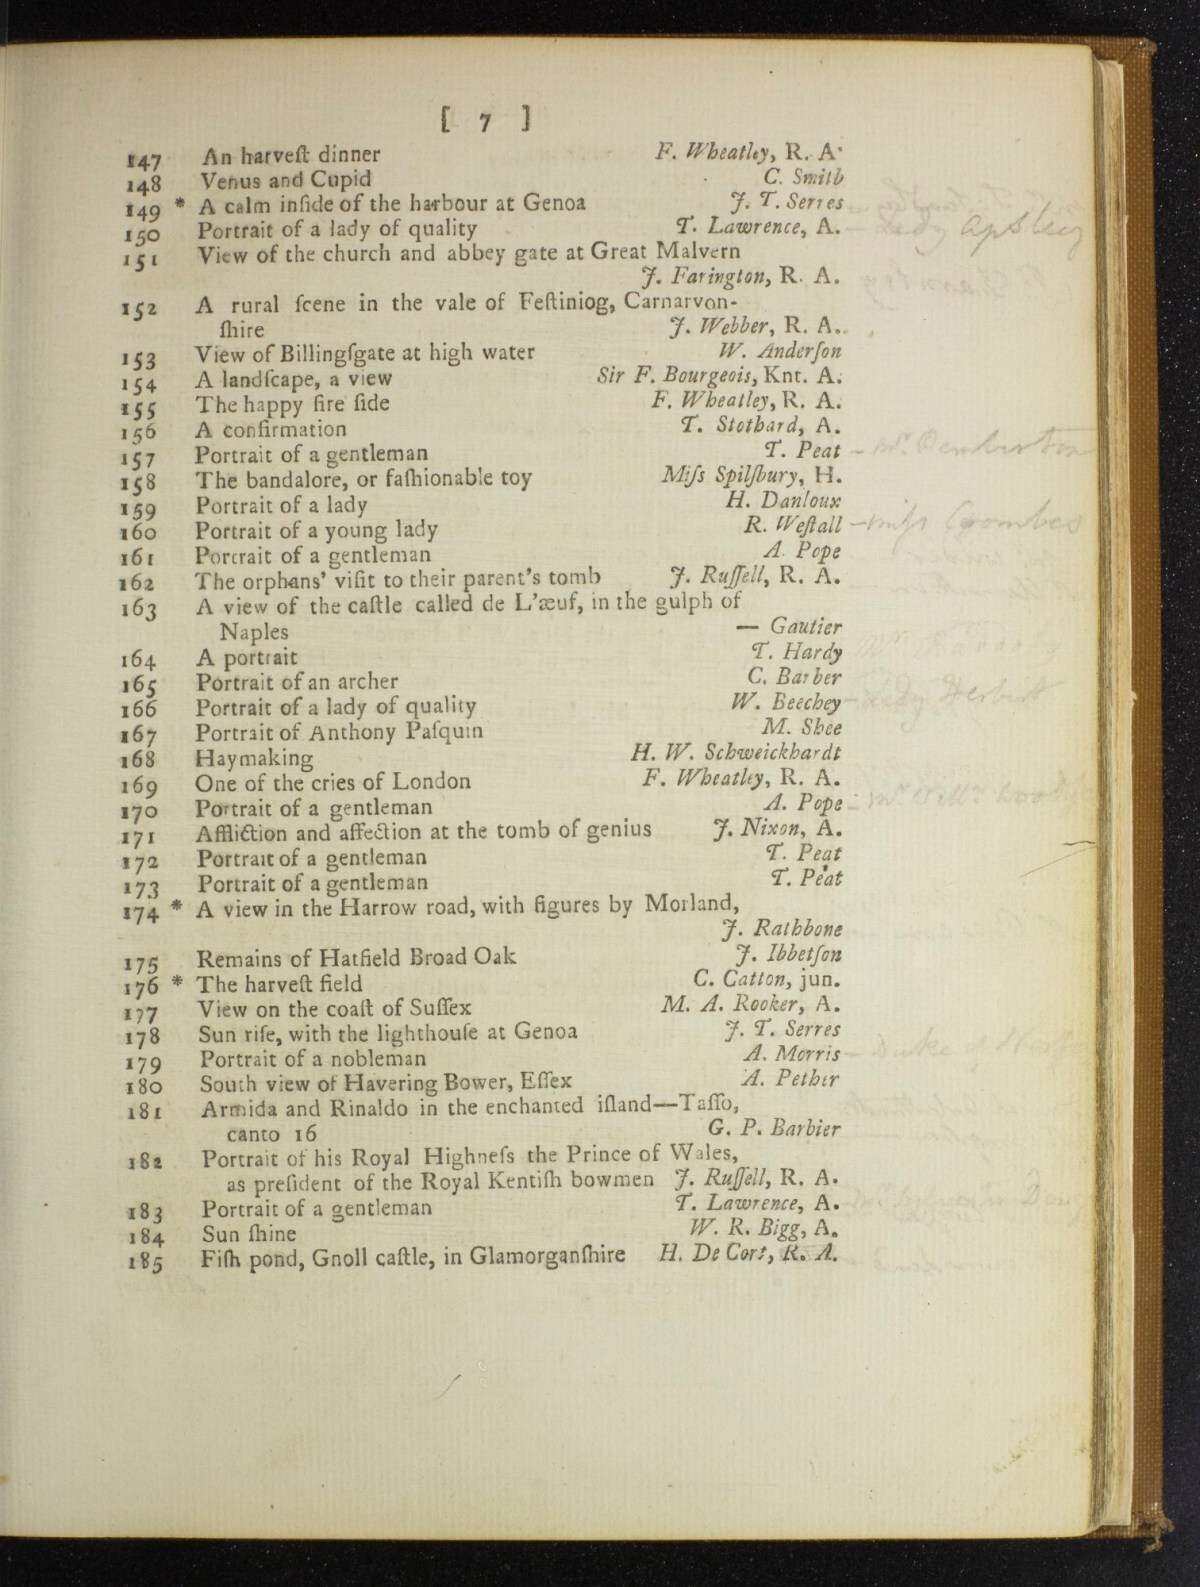 [ 7 ]
147 An harveſt dinner F. Wheatley, R. A.
148 Venus and Cupid C. Smith
149 * A calm inſide of the harbour at Genoa J. T. Serres
150 Portrait of a lady of quality T. Lawrence, A. – Lady Apsley
151 View of the church and abbey gate at Great Malvern
J. Farington, R. A.
152 A rural ſcene in the vale of Feſtiniog, Carnarvon-
ſhire J. Webber, R. A.
153 View of Billingſgate at high water W. Anderſon
154 A landſcape, a view Sir F. Bourgeois, Knt. A.
155 The happy fire ſide F. Wheatley, R. A.
156 A confirmation T. Stothard, A.
157 Portrait of a gentleman T. Peat – Mr. Pemberton
158 The bandalore, or faſhionable toy Miſs Spilſbury, H.
159 Portrait of a lady H. Danloux
160 Portrait of a young lady R. Weſtall – miſs Coombes
161 Portrait of a gentleman A. Pope
162 The orphans' viſit to their parent's tomb J. Ruſſell, R. A.
163 A view of the caſtle called de L'æuf, in the gulph of
Naples — Gautier
164 A portrait T. Hardy
165 Portrait of an archer C. Barber
166 Portrait of a lady of quality W. Beechey – Lady Herbert
167 Portrait of Anthony Paſquin M. Shee
168 Haymaking H. W. Schweickhardt
169 One of the cries of London F. Wheatley, R. A.
170 Portrait of a gentleman A. Pope
171 Affliction and affection at the tomb of genius J. Nixon, A.
172 Portrait of a gentleman T. Peat
173 Portrait of a gentleman T. Peat
174 * A view in the Harrow road, with figures by Morland,
J. Rathbone
175 Remains of Hatfield Broad Oak J. Ibbetſon
176 * The harveſt field C. Catton, jun.
177 View on the coaſt of Suſſex M. A. Rooker, A.
178 Sun riſe, with the lighthouſe at Genoa J. T. Serres
179 Portrait of a nobleman A. Morris – Duke of
180 South view of Havering Bower, Eſſex A. Pether
181 Armida and Rinaldo in the enchanted iſland—Taſſo,
canto 16 G. P. Barbier
182 Portrait of his Royal Highneſs the Prince of Wales,
as preſident of the Royal Kentiſh bowmen J. Ruſſell, R. A.
183 Portrait of a gentleman T. Lawrence, A.
184 Sun ſhine W. R. Bigg, A.
185 Fiſh pond, Gnoll caſtle, in Glamorganſhire H. De Cort, R. A.